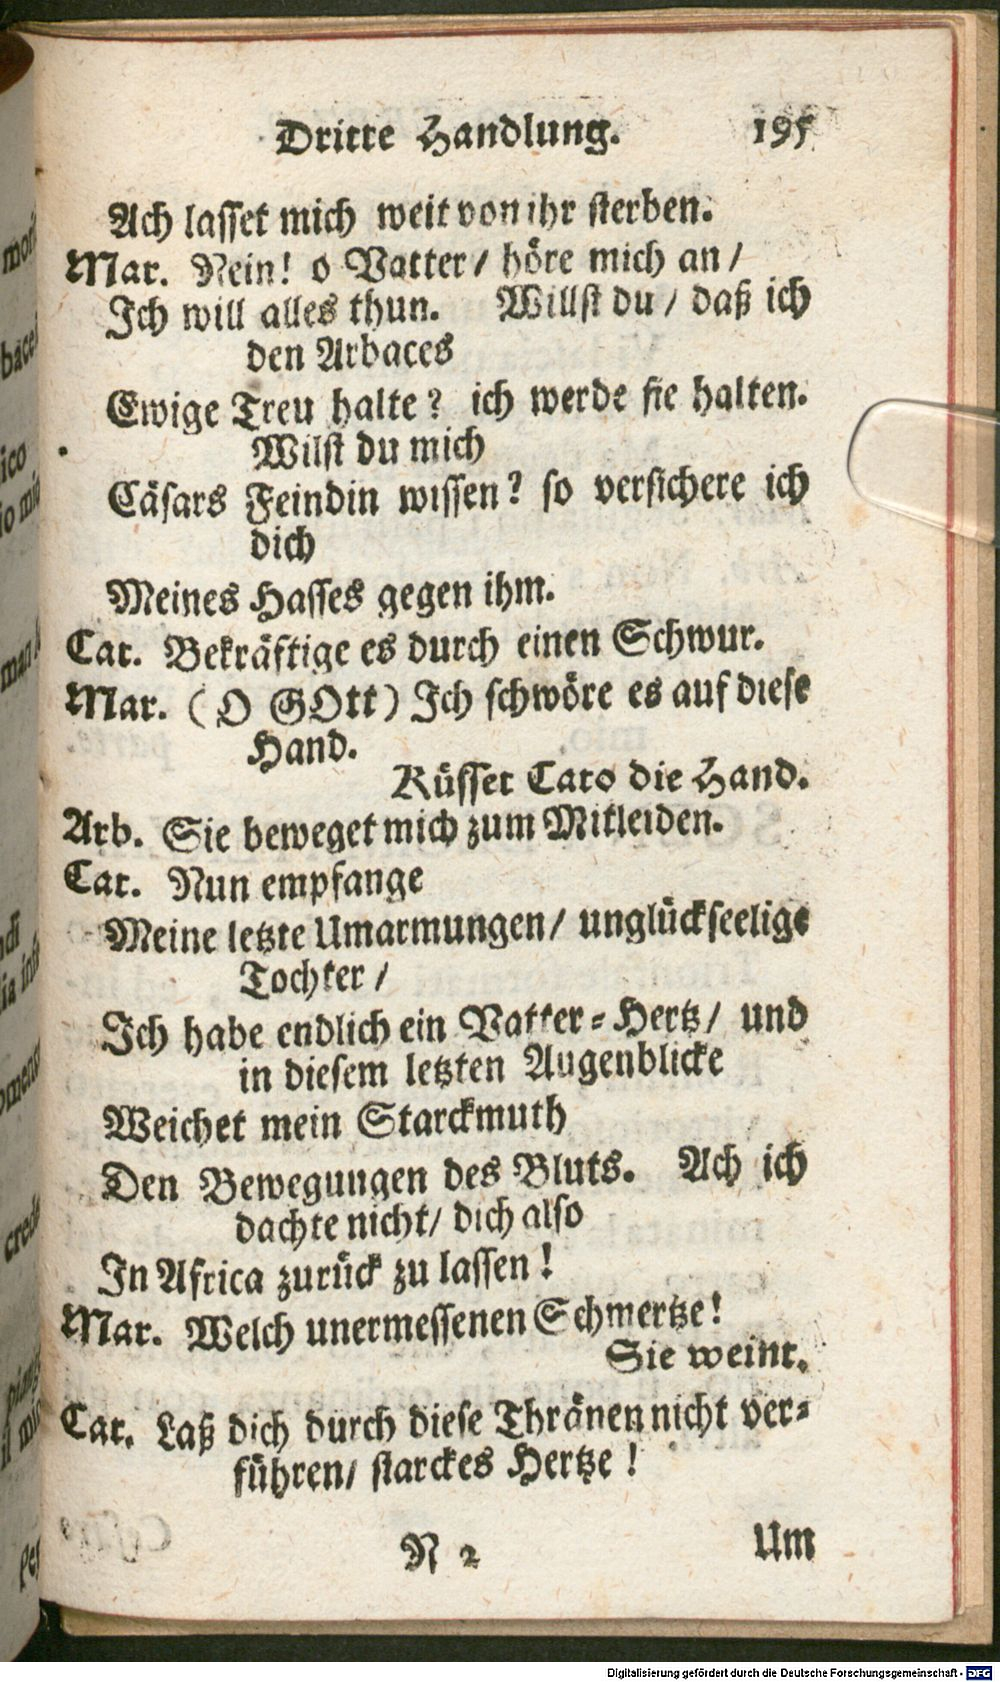 Dritte Handlung. 195
Ach lasset mich weit von ihr sterben.
Mar. Nein! o Vatter/ höre mich an/
Ich will alles thun. Willst du/ daß ich
den Arbaces
Ewige Treu halte? ich werde sie halten.
Wilst du mich
Cäsars Feindin wissen? so versichere ich
dich
Meines Hasses gegen ihm.
Cat. Bekräftige es durch einen Schwur.
Mar. (O GOtt) Ich schwöre es auf diese
Hand.
Küsset Cato die Hand.
Arb. Sie beweget mich zum Mitleiden.
Cat. Nun empfange
Meine letzte Umarmungen/ unglückseelige
Tochter/
Ich habe endlich ein Vatter-Hertz/ und
in diesem letzten Augenblicke
Weichet mein Starckmuth
Den Bewegungen des Bluts. Ach ich
dachte nicht/ dich also
In Africa zurück zu lassen!
Mar. Welch unermessenen Schmertze!
Sie weint.
Cat. Laß dich durch diese Thränen nicht ver-
führen/ starckes Hertze!
N 2 Um
Digitalisierung gefördert durch die Deutsche Forschungsgemeinschaft - DFG